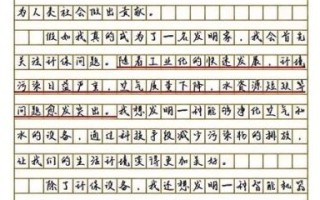 为人类社会做出贡献。
假如我真的成为了一名发明家，我会首先
关注环保问题。随着工业化的快速发展，环境
污染日益严重，空气质量下降，水资源短缺等
问题愈发突出。我想发明一种能够净化空气和
水的设备，通过科技手段减少污染物的排放，
让我们的生活环境变得更加美好。
除了环保设备，我还想发明一种智能机器